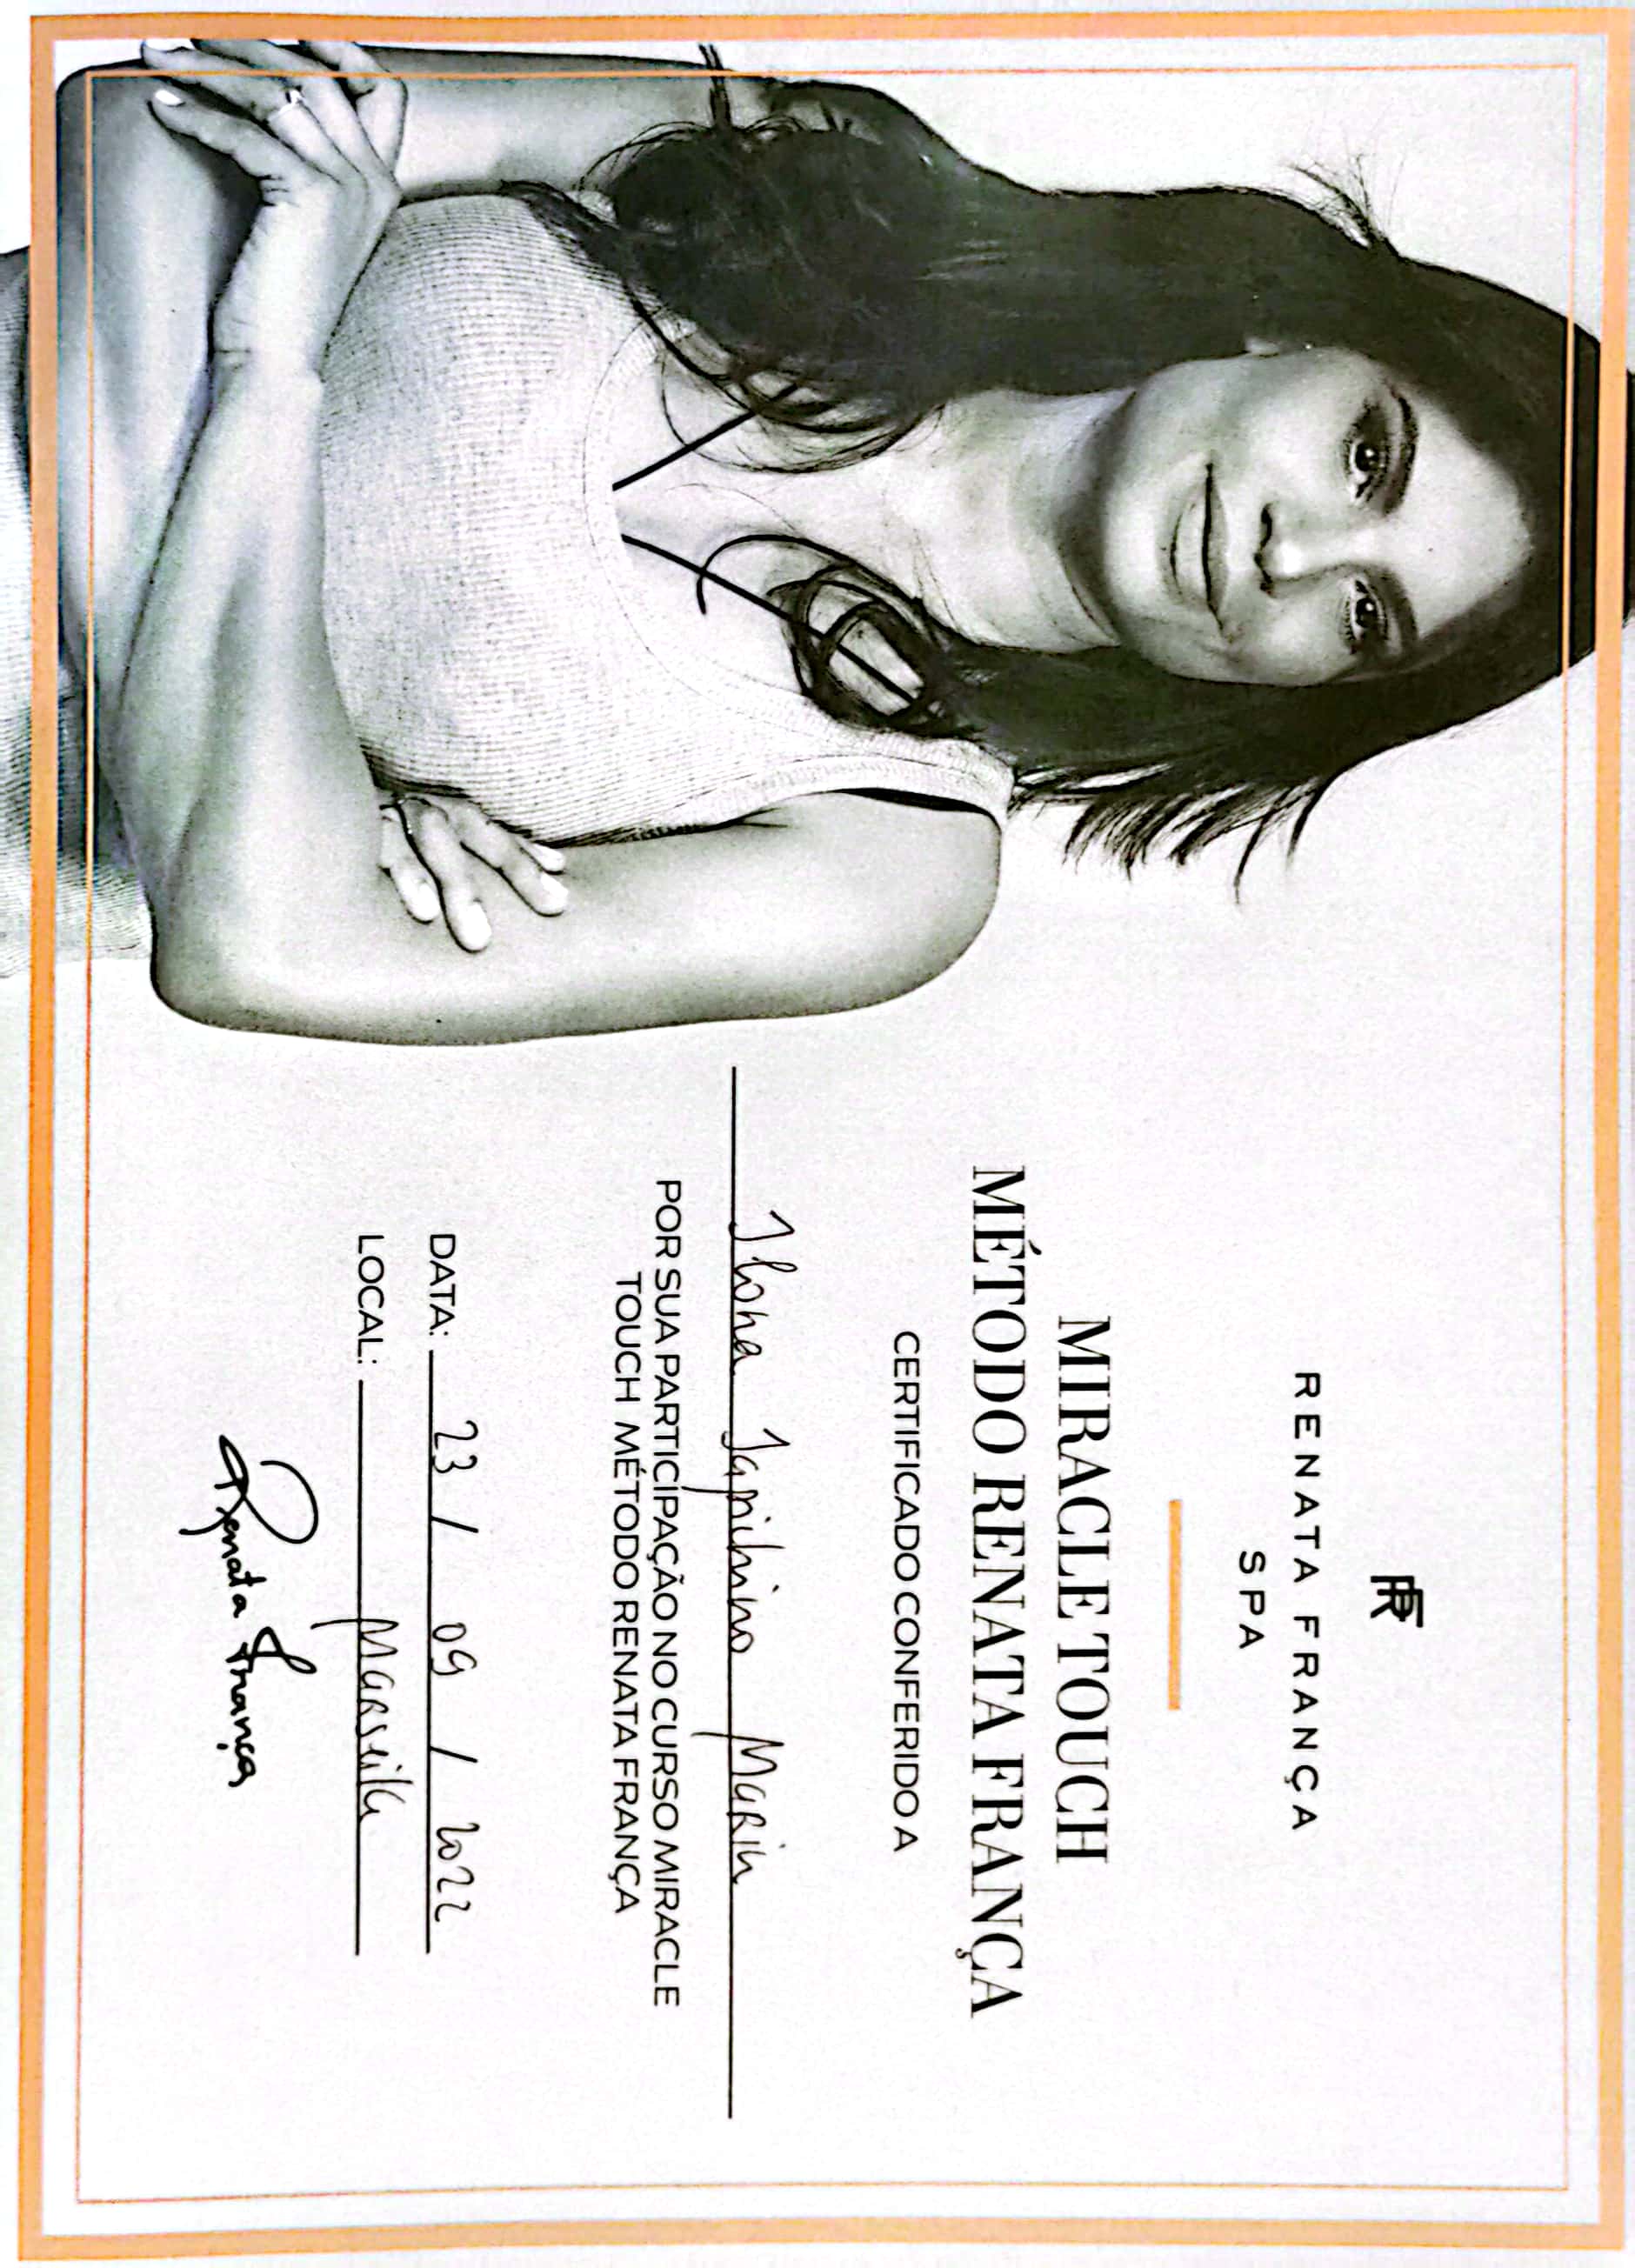 RENATA FRANÇA
SPA
MIRACLE TOUCH
MÉTODO RENATA FRANÇA
CERTIFICADO CONFERIDO A
Ilona Iapichino Marin
POR SUA PARTICIPAÇÃO NO CURSO MIRACLE
TOUCH MÉTODO RENATA FRANÇA
DATA: 23 / 09 / 2022
LOCAL: Marseille
Renata França